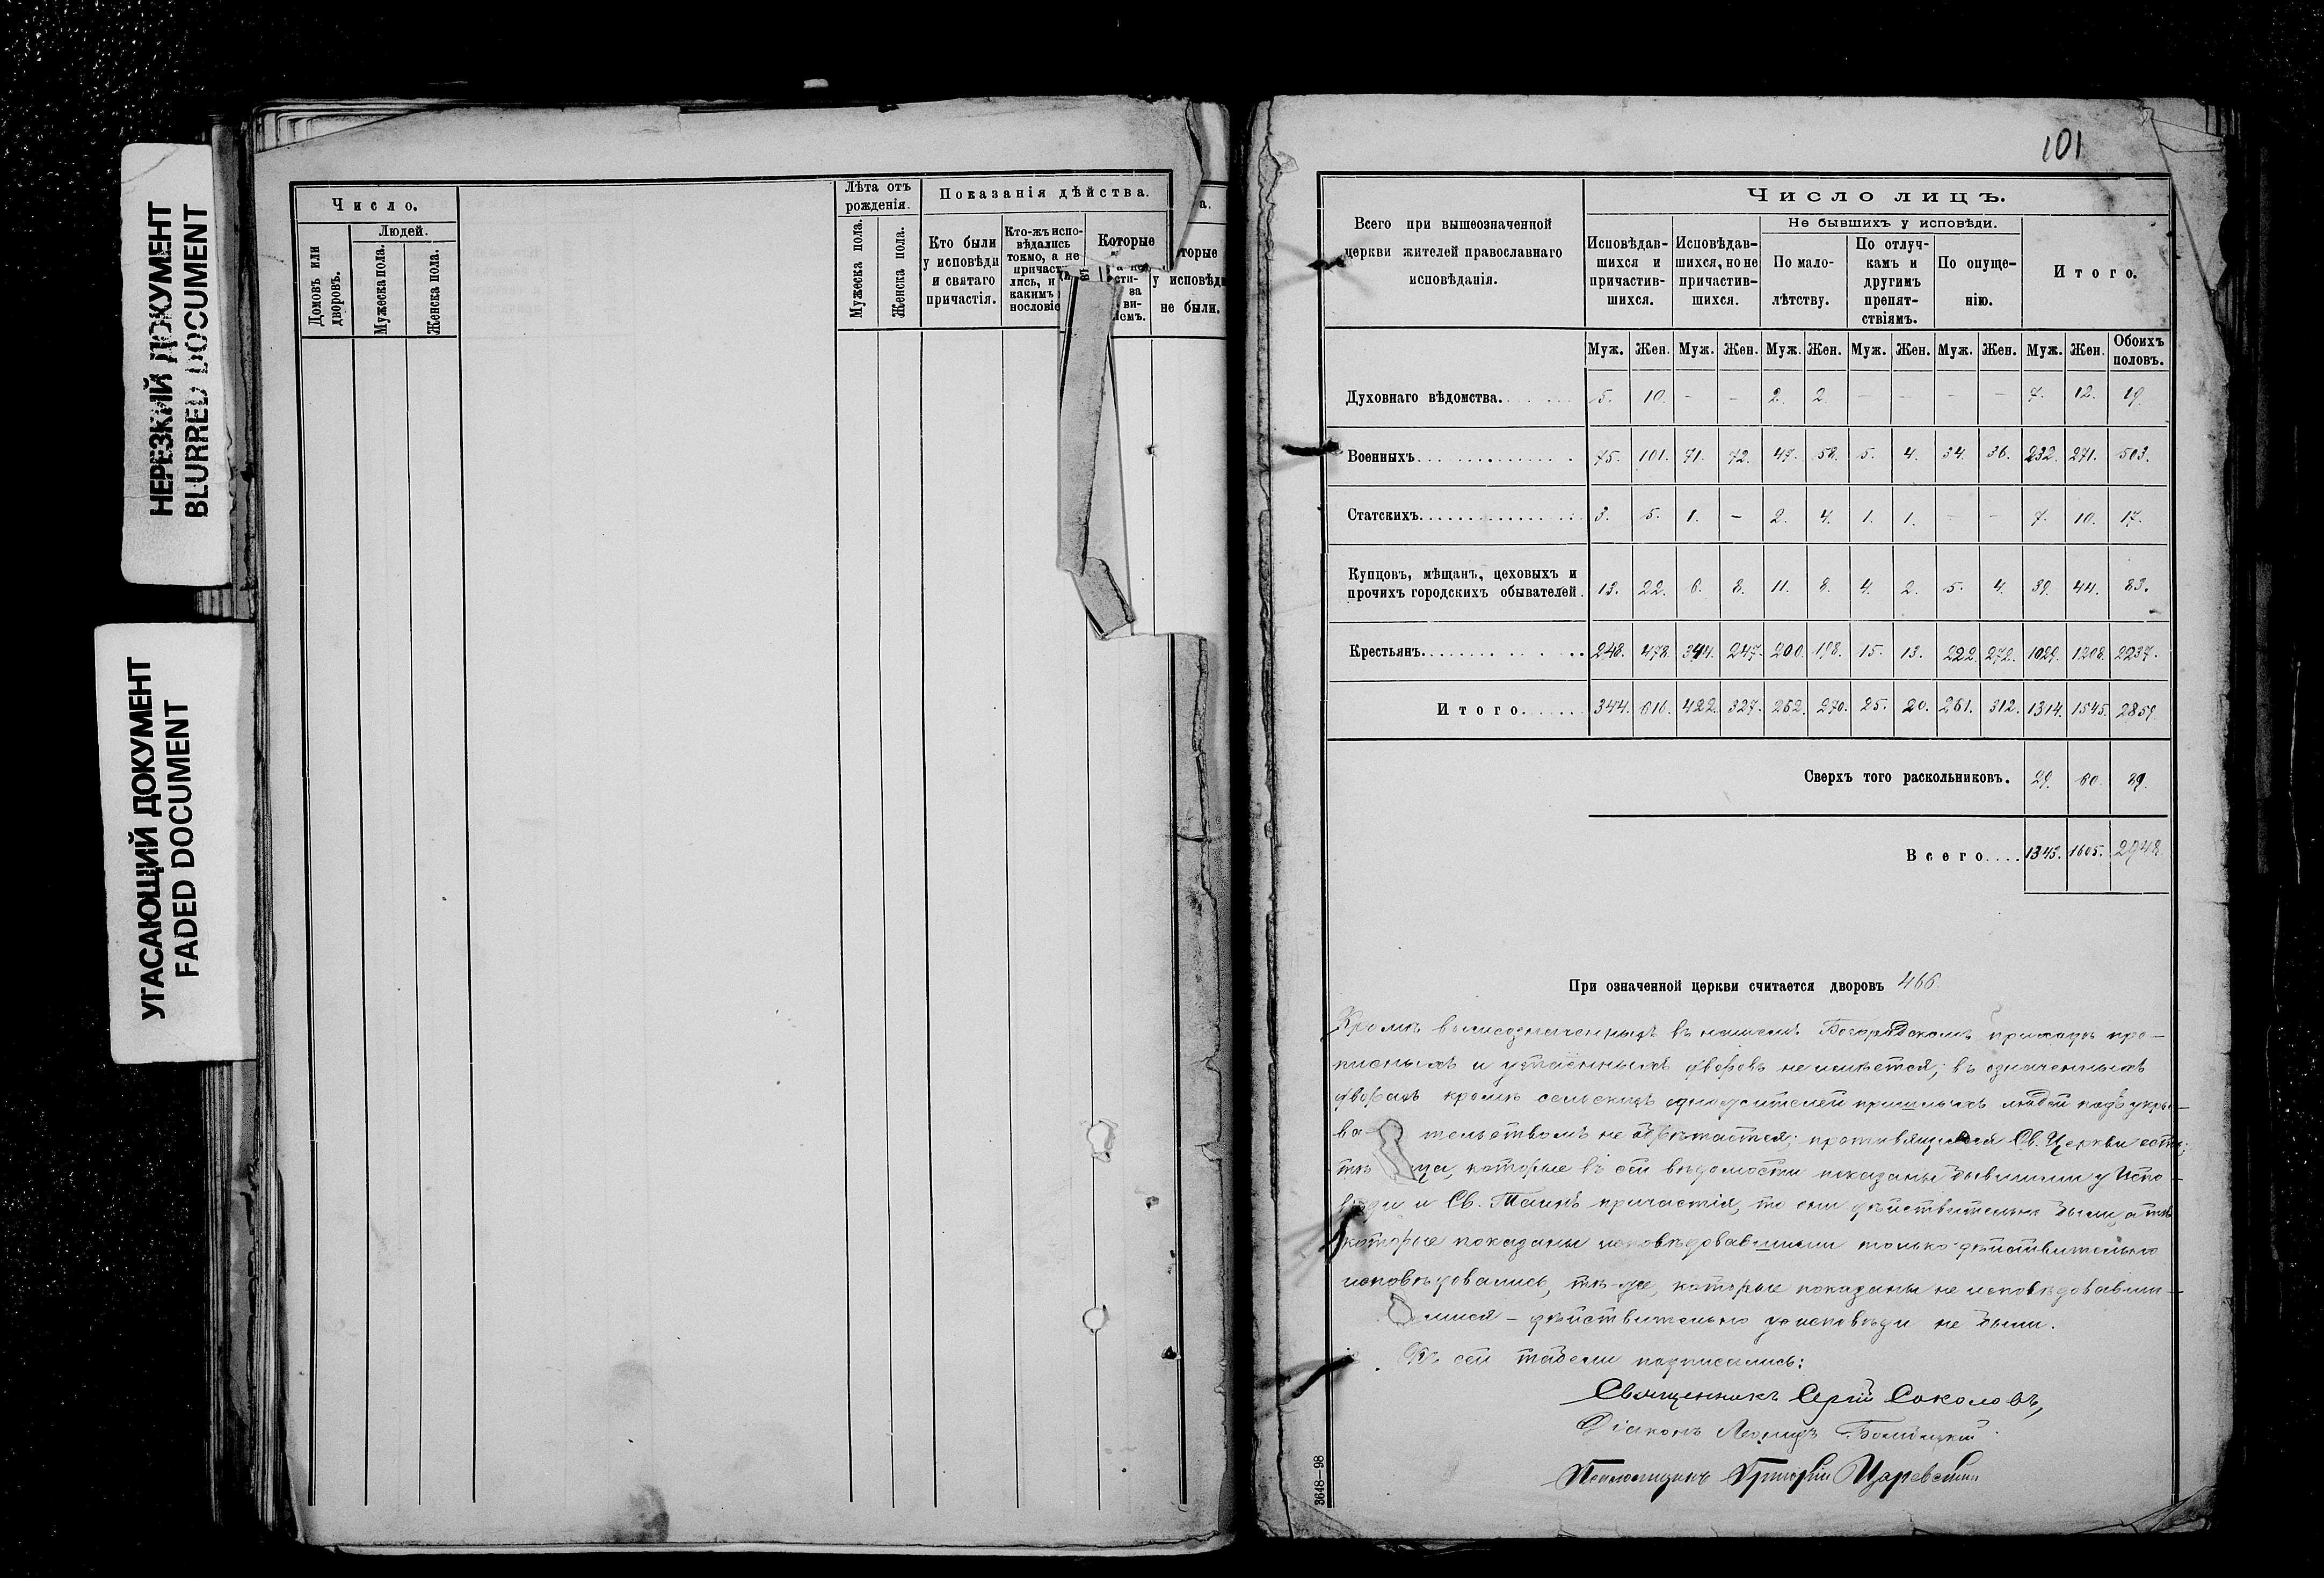 НЕРЕЗКИЙ ДОКУМЕНТ
BLURRED DOCUMENT
УГАСАЮЩИЙ ДОКУМЕНТ
FADED DOCUMENT
Число.
Домовъ или дворовъ.
Людей.
Мужеска пола.
Женска пола.
Лѣта отъ рожденія.
Мужеска пола.
Женска пола.
Показанія дѣйства.
Кто были у исповѣди и святаго причастія.
Кто-жъ испо-
вѣдались
токмо, а не
Которые
у исповѣди
не были.
101
Всего при вышеозначенной
церкви жителей православнаго
исповѣданія.
Число лицъ.
Исповѣдав-
шихся и
причастив-
шихся.
Исповѣдав-
шихся, но не
причастив-
шихся.
Не бывшихъ у исповѣди.
По мало-
лѣтству.
По отлуч-
камъ и
другимъ
препят-
ствіямъ.
По опуще-
нію.
Итого.
Муж. Жен. Муж. Жен. Муж. Жен. Муж. Жен. Муж. Жен. Муж. Жен. Обоихъ половъ.
Духовнаго вѣдомства. 5. 10. - - 2. 2. - - - - 7. 12. 19.
Военныхъ 75. 101. 71. 72. 47. 58. 5. 4. 34. 36. 232. 271. 503.
Статскихъ 3. 5. 1. - 2. 4. 1. 1. - - 7. 10. 17.
Купцовъ, мѣщанъ, цеховыхъ и
прочихъ городскихъ обывателей. 13. 22. 6. 8. 11. 8. 4. 2. 5. 4. 39. 44. 83.
Крестьянъ 248. 478. 344. 247. 200. 198. 15. 13. 222. 272. 1029. 1208. 2237.
Итого 344. 616. 422. 327. 262. 270. 25. 20. 261. 312. 1314. 1545. 2859.
Сверхъ того раскольниковъ. 29. 60. 89.
Всего 1343. 1605. 2948.
При означенной церкви считается дворовъ 466.
Кромѣ вышеозначенныхъ въ нашемъ Богородскомъ приходѣ про-
писныхъ и утаенныхъ дворовъ не имѣется; въ означенныхъ
дворахъ кромѣ сельскихъ одножителей пришлыхъ людей подъ укры-
ва тельствомъ не обрѣтается; противящіеся Св. Церкви есть;
тѣ ца, которые въ сей вѣдомости показаны бывшими у Испо-
вѣди и Св. Таинъ причастія, то они дѣйствительно были, а тѣ
которые показаны исповѣдовавшими только дѣйствительно
исповѣдовались, тѣ-же, которые показаны не исповѣдовавши-
мися - дѣйствительно у исповѣди не были.
Къ сей табели подписались:
Священникъ Сергій Соколовъ,
Діаконъ Леонидъ
Псаломщикъ Григорій
3648-98